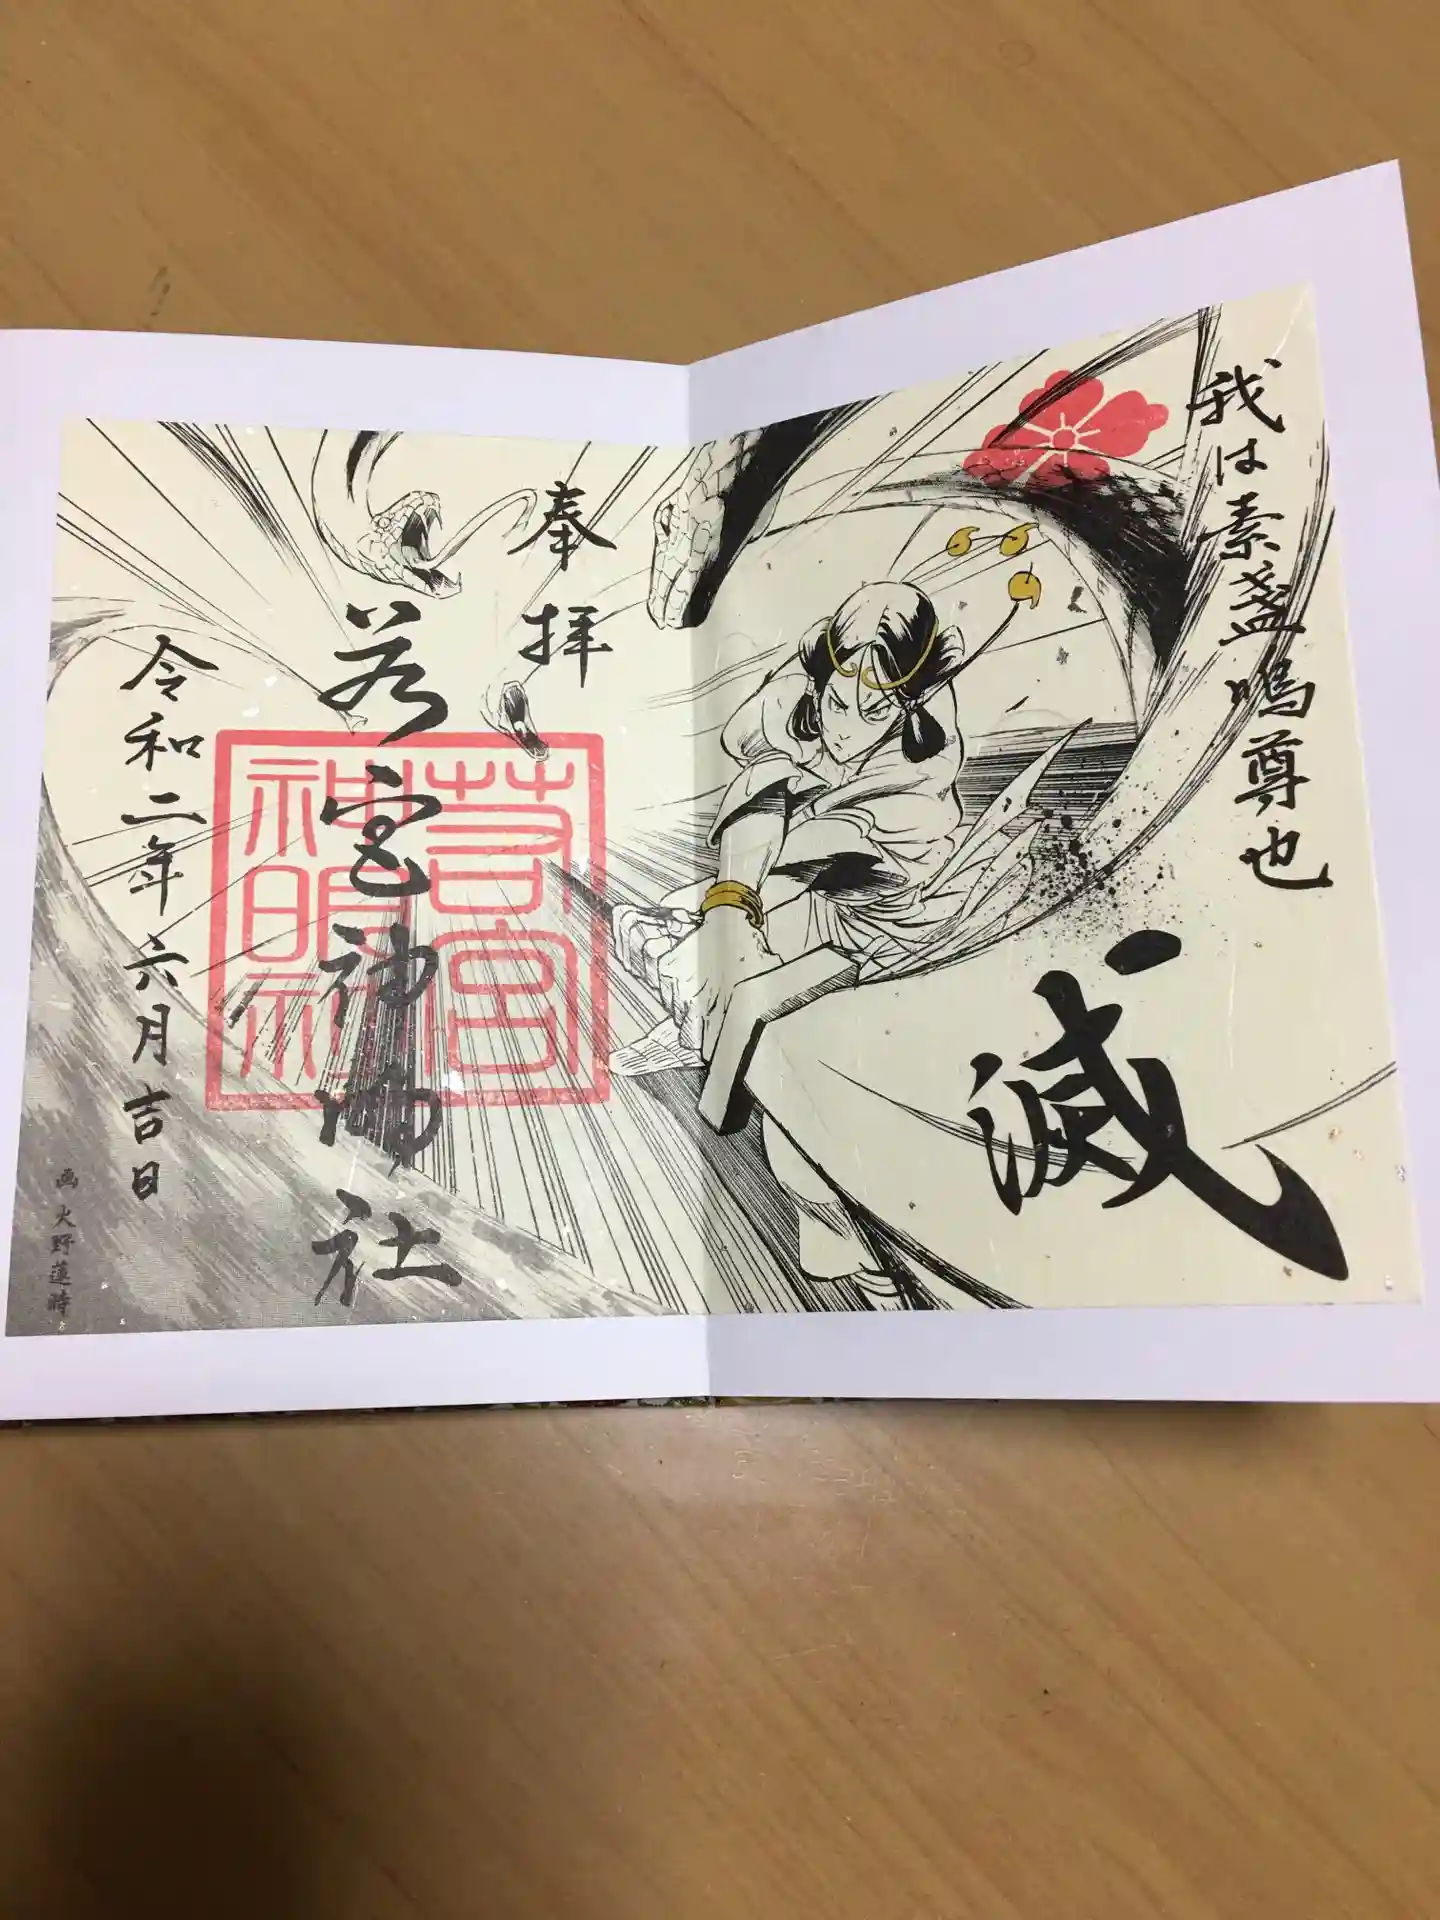 我は素盞嗚尊也
滅
奉拝
若宮神明社
若宮
神明社
令和二年六月吉日
画 火野蓮時